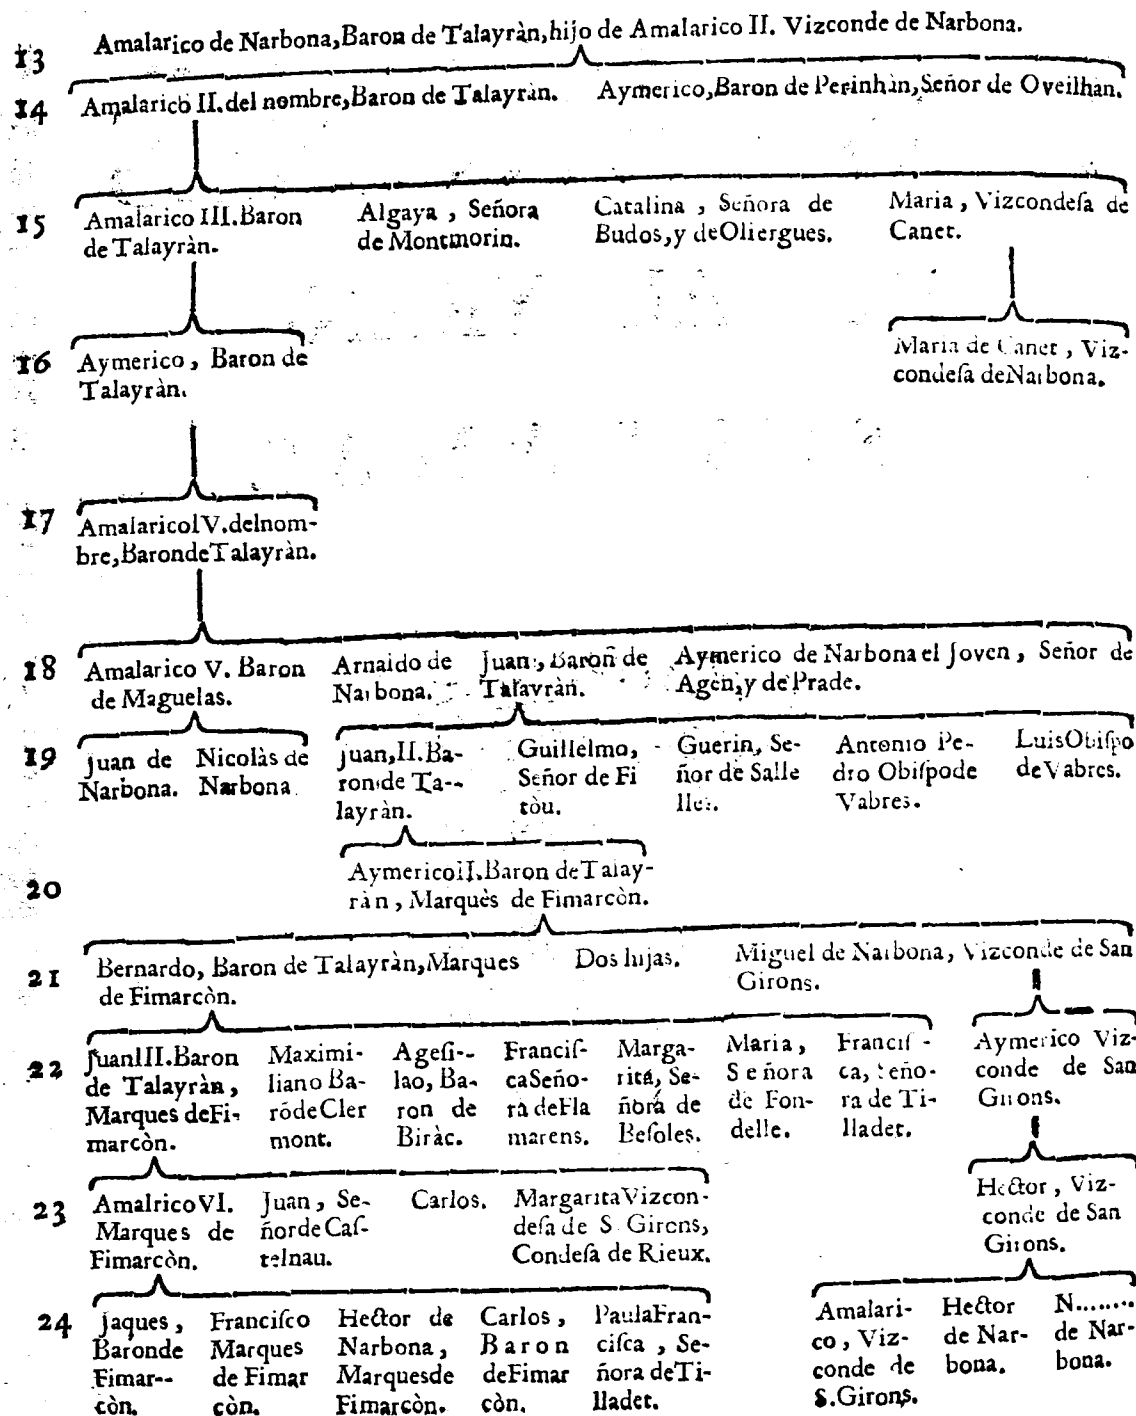 13 Amalarico de Narbona, Baron de Talayràn, hijo de Amalarico II. Vizconde de Narbona.
14 Amalarico II. del nombre, Baron de Talayràn. Aymerico, Baron de Perinhàn, Señor de Oveilhan.
15 Amalarico III. Baron
de Talayràn.
Algaya, Señora
de Montmorin.
Catalina, Señora de
Budos, y de Oliergues.
Maria, Vizcondeſa de
Canet.
16 Aymerico, Baron de
Talayràn.
Maria de Canet, Viz-
condeſa de Narbona.
17 Amalarico IV. del nom-
bre, Baron de Talayràn.
18 Amalarico V. Baron
de Maguelas.
Arnaldo de
Narbona.
Juan, Baron de
Talayràn.
Aymerico de Narbona el Joven, Señor de
Agèn, y de Prade.
19 Juan de
Narbona.
Nicolàs de
Narbona
Juan, II. Ba-
ron de Ta--
layràn.
Guillelmo,
Señor de Fi
tòu.
Guerin, Se-
ñor de Salle
lles.
Antonio Pe-
dro Obiſpo de
Vabres.
Luis Obiſpo
de Vabres.
20 Aymerico II. Baron de Talay-
ràn, Marquès de Fimarcòn.
21 Bernardo, Baron de Talayràn, Marques
de Fimarcòn.
Dos hijas.
Miguel de Narbona, Vizconde de San
Girons.
22 Juan III. Baron
de Talayràn,
Marques de Fi-
marcòn.
Maximi-
liano Ba-
rõ de Cler
mont.
Ageſi--
lao, Ba-
ron de
Biràc.
Franciſ-
ca Seño-
ra de Fla
marens.
Marga-
rita, Se-
ñora de
Beſoles.
Maria,
Señora
de Fon-
delle.
Franciſ-
ca, Seño-
ra de Ti-
lladet.
Aymerico Viz-
conde de San
Girons.
23 Amalrico VI.
Marques de
Fimarcòn.
Juan, Se-
ñor de Caſ-
telnau.
Carlos.
Margarita Vizcon-
deſa de S. Girons,
Condeſa de Rieux.
Hector, Viz-
conde de San
Girons.
24 Jaques,
Baron de
Fimar--
còn.
Franciſco
Marques
de Fimar
còn.
Hector de
Narbona,
Marques de
Fimarcòn.
Carlos,
Baron
de Fimar
còn.
Paula Fran-
ciſca, Se-
ñora de Ti-
lladet.
Amalari-
co, Viz-
conde de
S. Girons.
Hector
de Nar-
bona.
N........
de Nar-
bona.